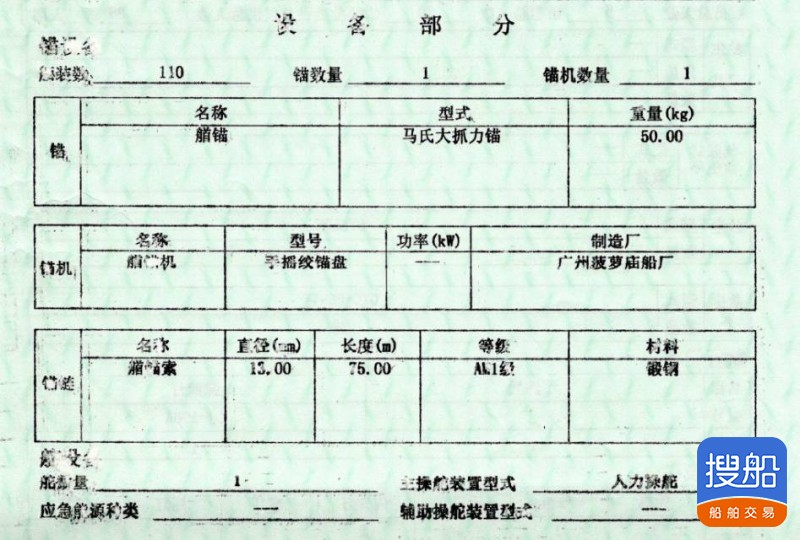 设备部分
舾装数 110 锚数量 1 锚机数量 1
锚
名称 型式 重量(kg)
艏锚 马氏大抓力锚 50.00
锚机
名称 型号 功率(kW) 制造厂
艏锚机 手摇绞锚盘 —— 广州菠萝庙船厂
锚链
名称 直径(mm) 长度(m) 等级 材料
艏锚索 13.00 75.00 AM1级 锻钢
舵设备
舵数量 1 主操舵装置型式 人力操舵
应急能源种类 —— 辅助操舵装置型式 ——
搜船
船舶交易